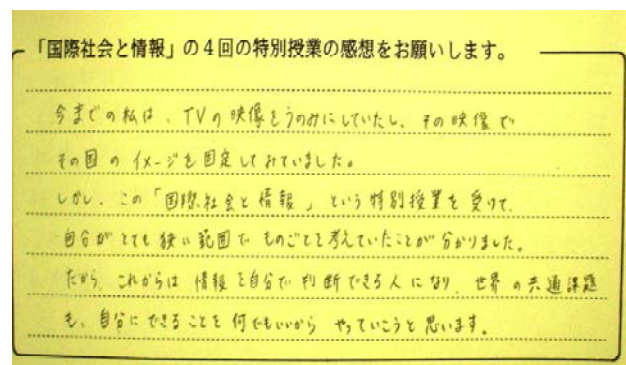 「国際社会と情報」の4回の特別授業の感想をお願いします。
今までの私は、TVの映像をうのみにしていたし、その映像で
その国のイメージを固定してみていました。
しかし、この「国際社会と情報」という特別授業を受けて、
自分がとても狭い範囲でものごとを考えていたことが分かりました。
だから、これからは情報を自分で判断できる人になり、世界の共通課題
も、自分にできることを何でもいいからやっていこうと思います。